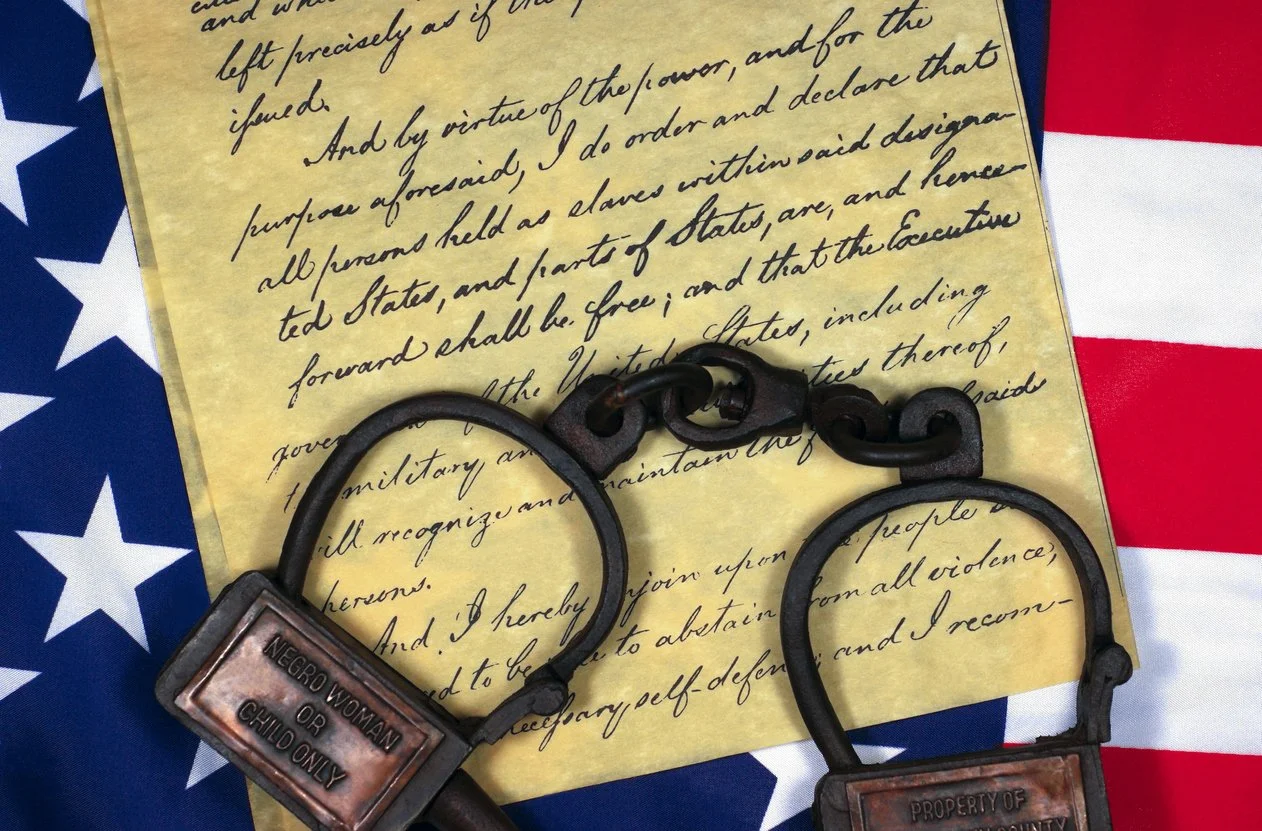 and
left precisely as if the
issued.
And by virtue of the power, and for the
purpose aforesaid, I do order and declare that
all persons held as slaves within said designa-
ted States, and parts of States, are, and hence-
forward shall be free; and that the Executive
of the United States, including
military and thereof,
recognize and maintain the
persons.
And I hereby upon people
to abstain from all violence,
necessary self-defence; and I recom-
NEGRO WOMAN
OR
CHILD ONLY
PROPERTY OF
COUNTY